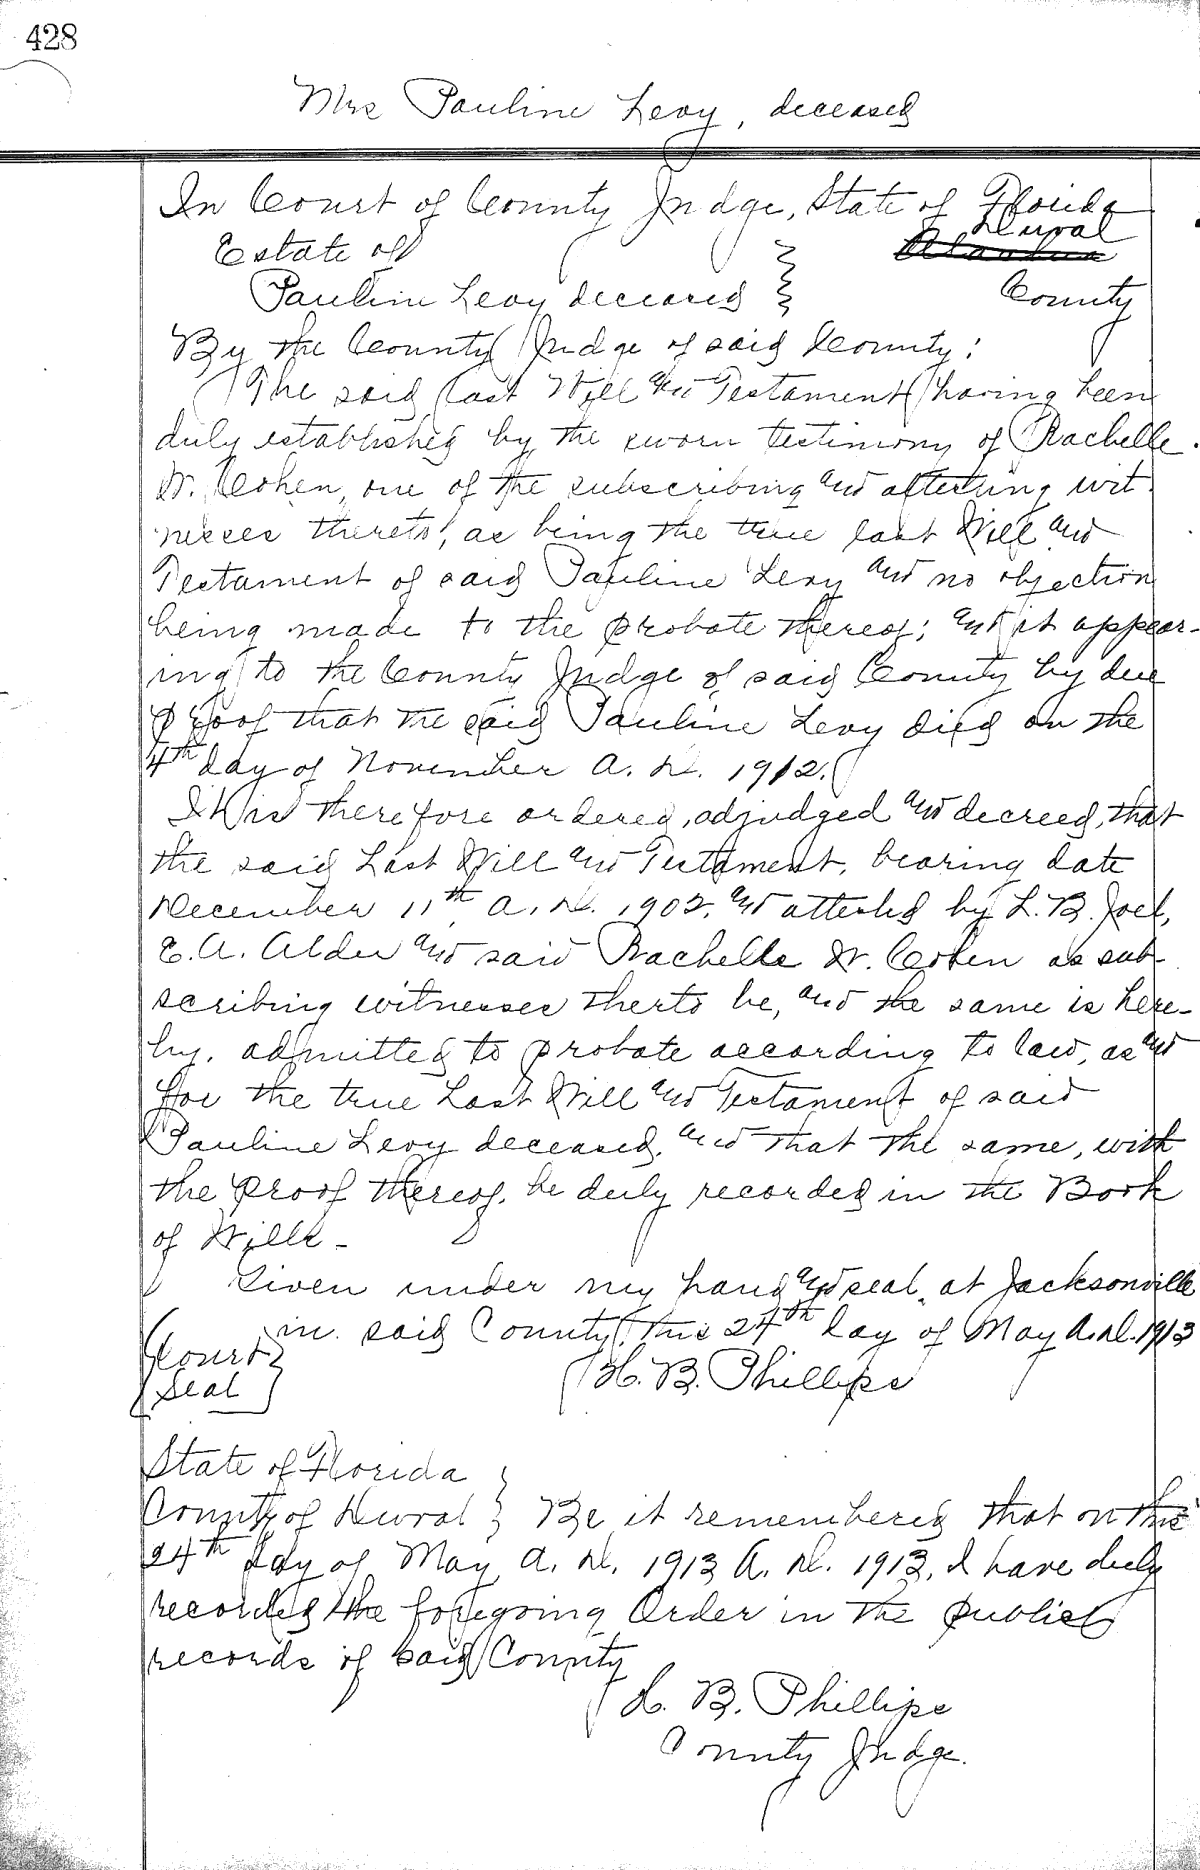 428
Mrs Pauline Levy, deceased
In Court of County Judge, State of Florida
Duval
Estate of Alachua
Pauline Levy deceased County
By the County Judge of said County:
The said Last Will and Testament having been
duly established by the sworn testimony of Rachelle
W. Cohen, one of the subscribing and attesting wit
nesses thereto, as being the true last Will and
Testament of said Pauline Levy and no objection
being made to the probate thereof; and it appear-
ing to the County Judge of said County by due
proof that the said Pauline Levy died on the
4th day of November A. D. 1912.
It is therefore ordered, adjudged and decreed, that
the said Last Will and Testament, bearing date
December 11th A. D. 1902, and attested by L. B. Joel,
E. A. Alder and said Rachelle W. Cohen as sub-
scribing witnesses therto be, and the same is here-
by, admitted to probate according to law, as and
for the true Last Will and Testament of said
Pauline Levy deceased, and that the same, with
the proof thereof, be duly recorded in the Book
of Wills -
Given under my hand and seal, at Jacksonville
in said County, this 24th day of May A.D. 1913
Court
Seal
H. B. Phillips
State of Florida
County of Duval } Be it remembered that on this
24th day of May A. D. 1913 A. D. 1913, I have duly
recorded the foregoing Order in the public
records of said County
H. B. Phillips
County Judge.